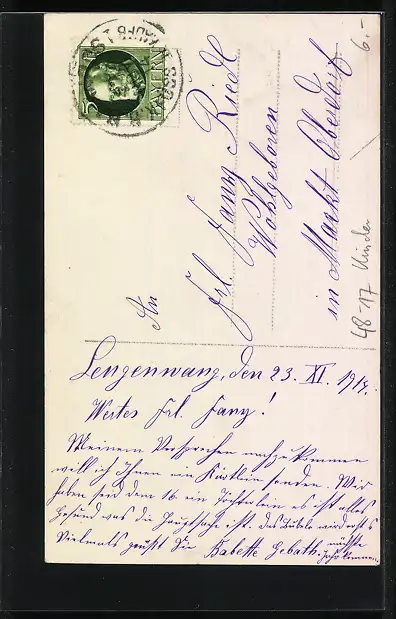 5
BAYERN
6.-
An
Frl. Fanny Riedl
Wohlgeboren
in Markt Oberdorf
48-17 Kinder
Lengenwang, den 23. XI. 1914.
Wertes Frl. Fany!
Meinem Versprechen nachzukommen
will ich Ihnen ein Kärtlein senden. Wir
haben seid dem 16 ein Töchterlein es ist alles
gesund was die Hauptsache ist. Das Bubele wird erst
nächstes
Jahr kommen.
Vielmals grüßt Sie Babette